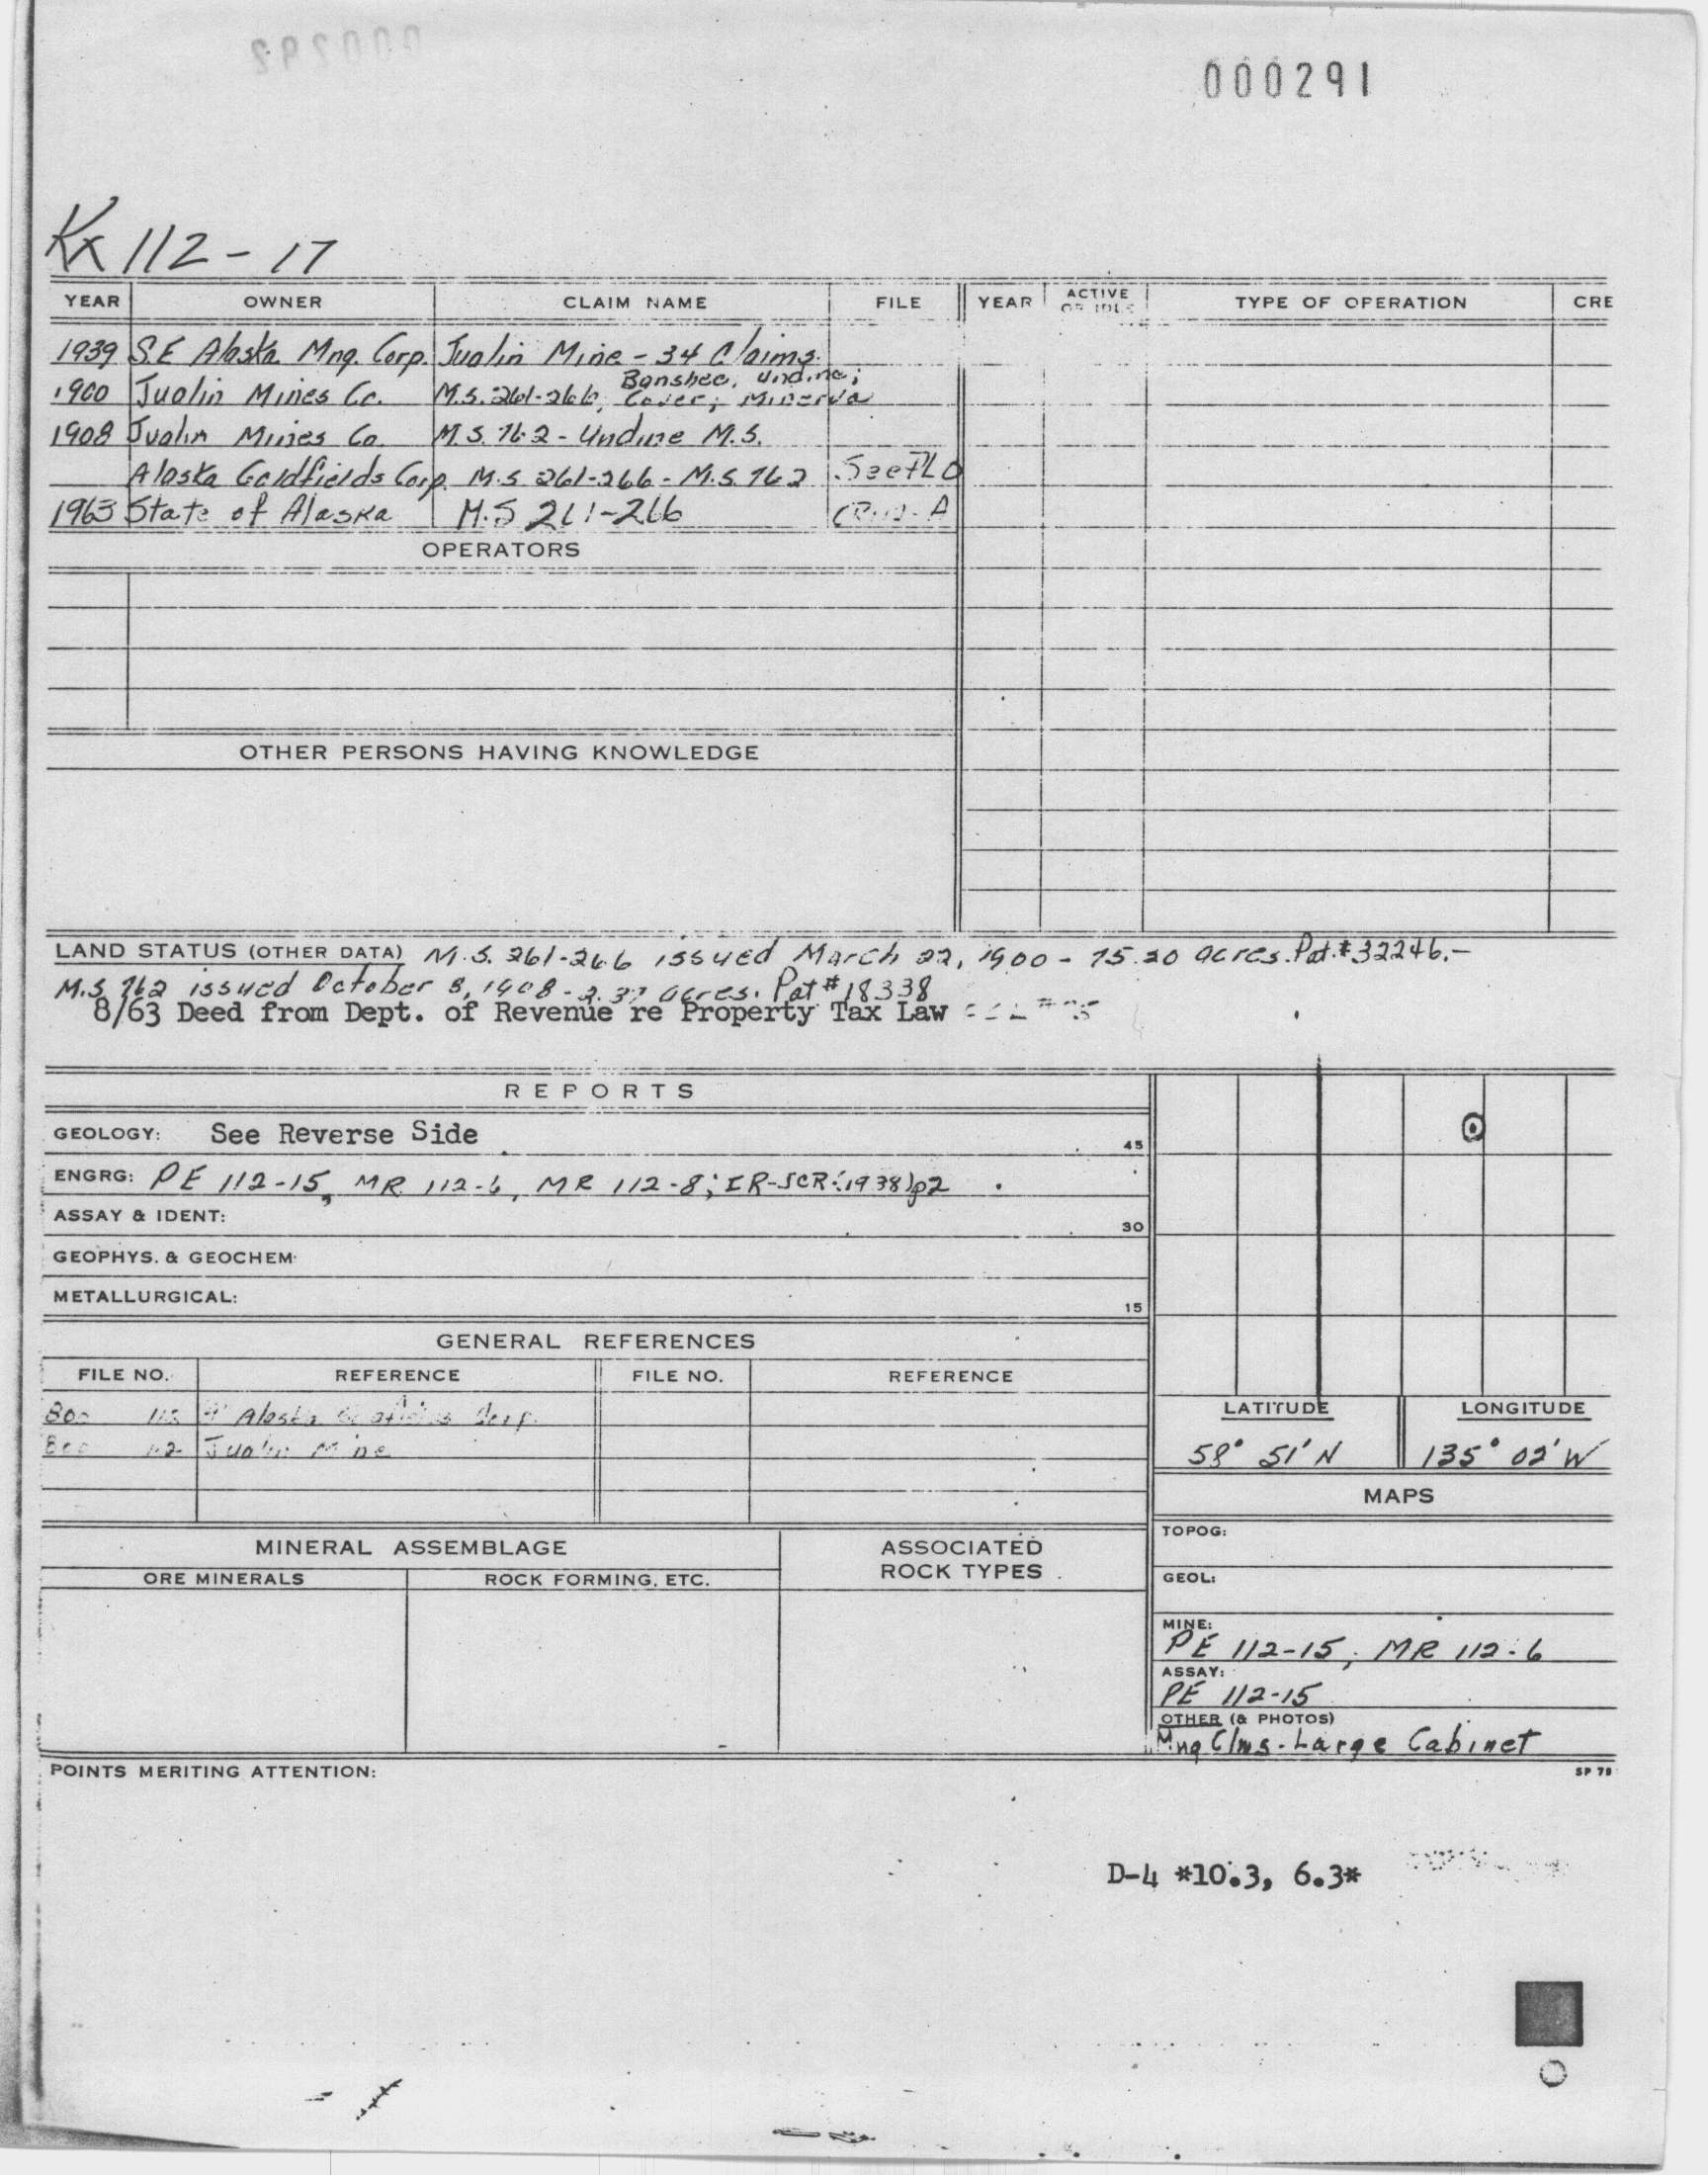 000291
Kx 112-17
YEAR OWNER CLAIM NAME FILE YEAR ACTIVE OR IDLE TYPE OF OPERATION CRE
1939 S.E Alaska Mng. Corp. Jualin Mine - 34 Claims.
Banshee, Undine;
1900 Jualin Mines Co. M.S. 261-266, Minerva
1908 Jualin Mines Co. M.S. 762 - Undine M.S.
Alaska Goldfields Corp. M.S 261-266 - M.S. 762 See
1963 State of Alaska M.S 261-266
OPERATORS
OTHER PERSONS HAVING KNOWLEDGE
LAND STATUS (OTHER DATA) M.S. 261-266 issued March 22, 1900 - 75.20 acres. Pat.#32246.-
M.S. 762 issued October 8, 1908 - 2.37 acres. Pat #18338
8/63 Deed from Dept. of Revenue re Property Tax Law
REPORTS
GEOLOGY: See Reverse Side 45
ENGRG: PE 112-15, MR 112-6, MR 112-8; IR-SCR:(1938)p2
ASSAY & IDENT: 30
GEOPHYS. & GEOCHEM.
METALLURGICAL: 15
GENERAL REFERENCES
FILE NO. REFERENCE FILE NO. REFERENCE
Alaska Corp.
Jualin Mine
LATITUDE LONGITUDE
58° 51' N 135° 02' W
MAPS
MINERAL ASSEMBLAGE
ORE MINERALS ROCK FORMING, ETC.
ASSOCIATED
ROCK TYPES
TOPOG:
GEOL:
MINE:
PE 112-15, MR 112-6
ASSAY:
PE 112-15
OTHER (& PHOTOS)
Mng Clms - Large Cabinet
POINTS MERITING ATTENTION: SP 78
D-4 *10.3, 6.3*